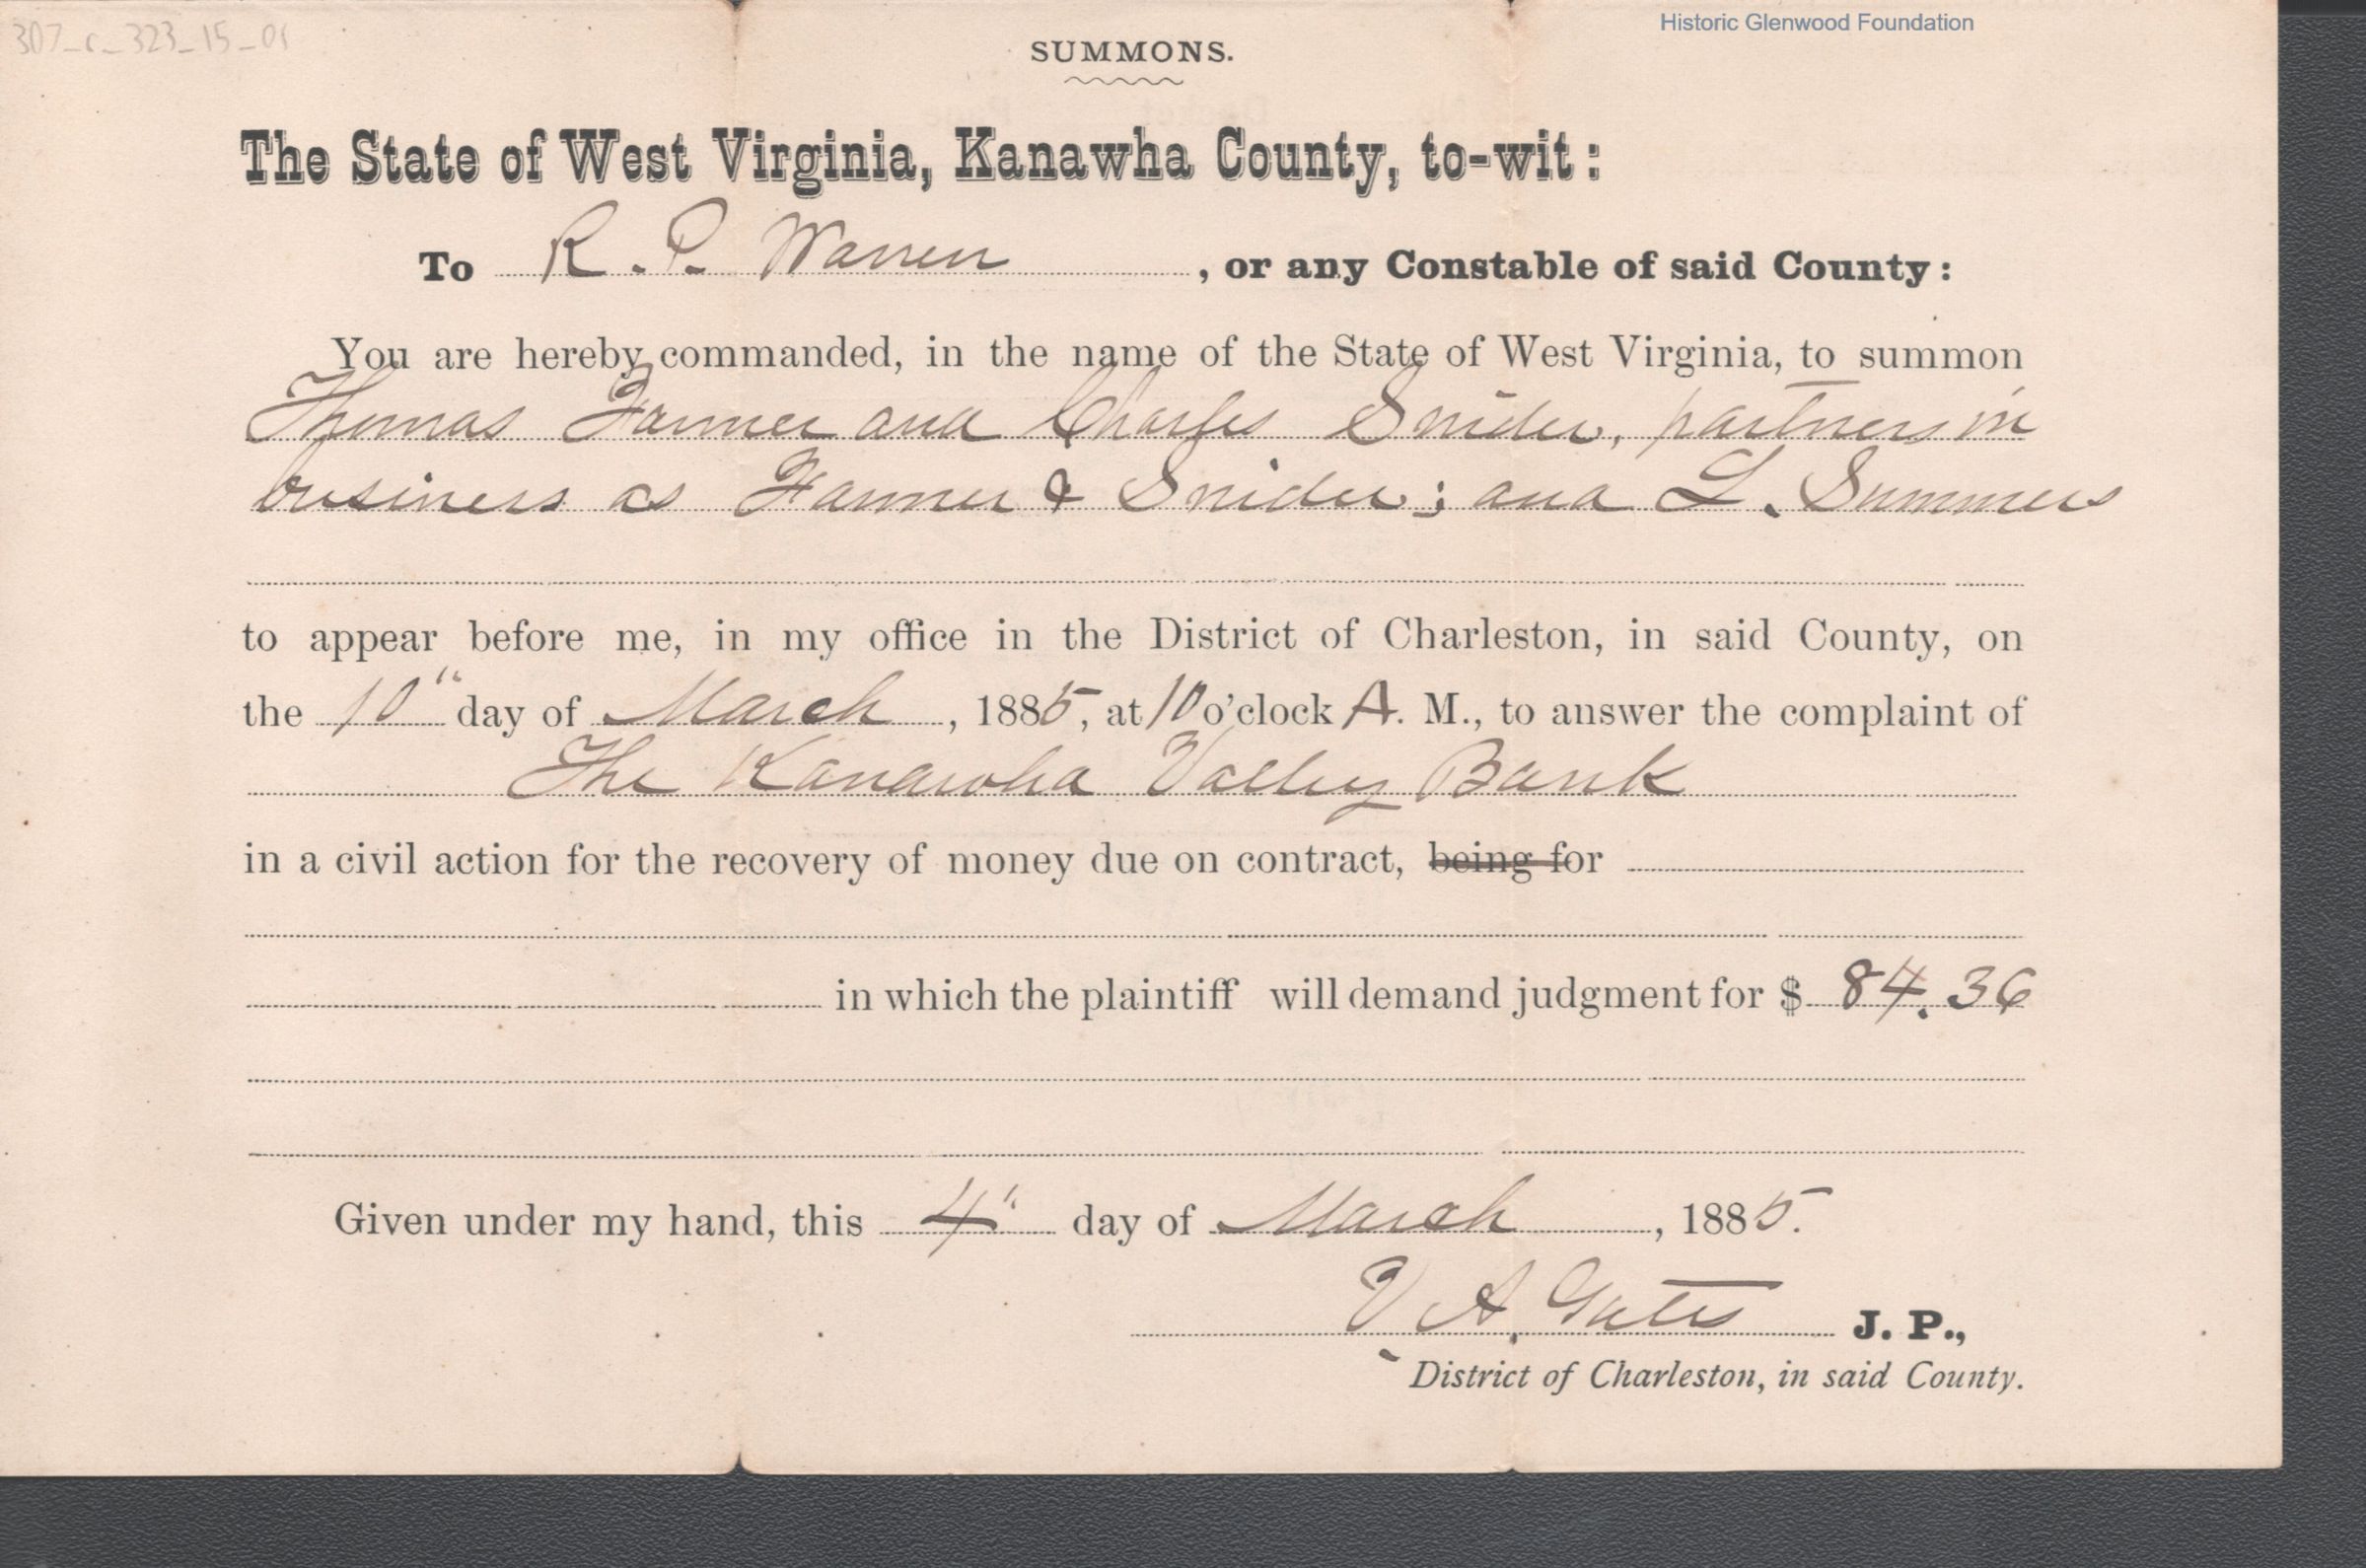 307_c_323_15_01
Historic Glenwood Foundation
SUMMONS.
The State of West Virginia, Kanawha County, to-wit:
To R. P. Warren, or any Constable of said County:
You are hereby commanded, in the name of the State of West Virginia, to summon
Thomas Farmer and Charles Snider, partners in
business as Farmer & Snider; and L. Summers
to appear before me, in my office in the District of Charleston, in said County, on
the 10" day of March, 1885, at 10 o'clock A. M., to answer the complaint of
The Kanawha Valley Bank
in a civil action for the recovery of money due on contract, being for
in which the plaintiff will demand judgment for $ 84.36
Given under my hand, this 4" day of March, 1885.
V. A. Gates J. P.,
District of Charleston, in said County.